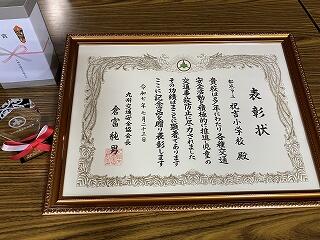 表彰状
祝吉小学校 殿
貴校は多年にわたり各種交通
安全活動を積極的に推進し児童の
交通事故防止に尽力されました
その功績はまことに顕著であります
ここに記念品を贈り表彰します
令和七年七月二十三日
九州交通安全協会長
倉富純男
賞